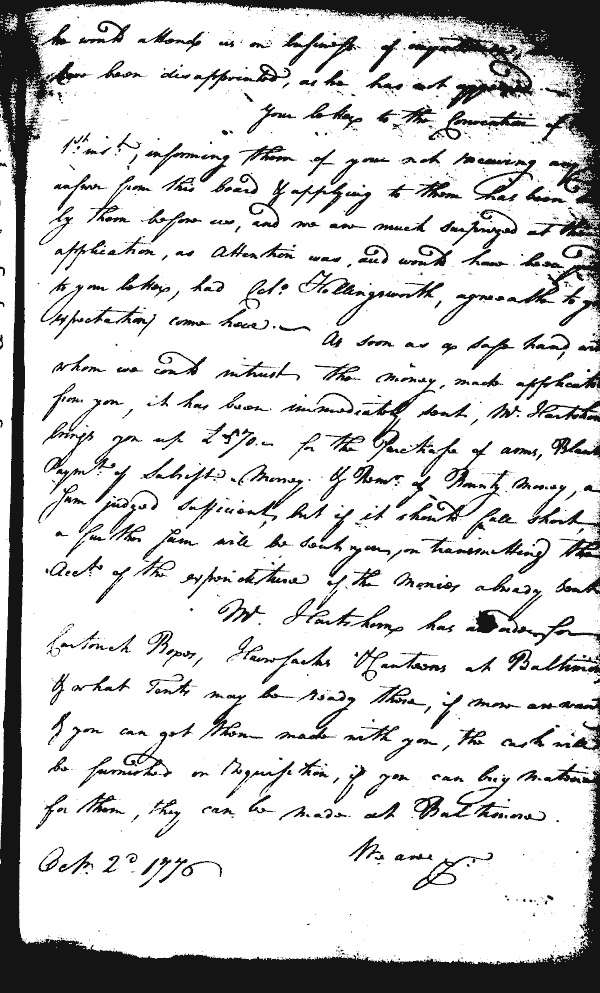 he would attend us on business of importance,
have been disappointed, as he has not appeared
Your letter to the Convention of
1st inst., informing them of your not receiving any
answer from this board & applying to them has been
ly them before us, and we are much surprized at the
application, as attention was, and would have been
to your letter, had Colo. Hollingsworth, agreeable to
expectation, come here. — As soon as a safe hand,
whom we could intrust the money, made
from you, it has been immediately sent, Mr. Hartshorn
brings you up for the Purchase of arms,
Paymt. of Subsist. Money & Remr. of Bounty money, a
Sum judged sufficient, but if it should fall short,
a further sum will be sent you, on transmitting the
Acct. of the expenditure of the monies already sent
Mr. Hartshorn has an order for
Cartouch Boxes, Haversacks & Canteens at Baltimore
& what Tents may be ready there, if more are
& you can get them made with you, the cash will
be furnished on requisition, if you can buy
for them, they can be made at Baltimore.
We are &c.
Octr. 2d. 1776